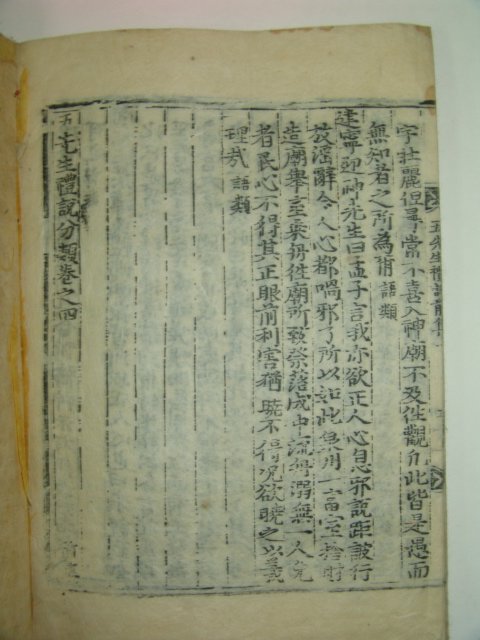 五先生禮說前集
宇壯麗但尋常不喜入神廟不及往觀凡此皆是愚而
無知者之所為耳 語類
建寧迎神先生曰孟子言我亦欲正人心息邪說距詖行
放淫辭今人心都喎邪了所以如此泉州一富室捨財
造廟舉室乘舟往廟所致祭落成中流舟溺無一人免
者民心不得其正眼前利害猶曉不得況欲曉之以義
理哉 語類
五先生禮說分類卷之四